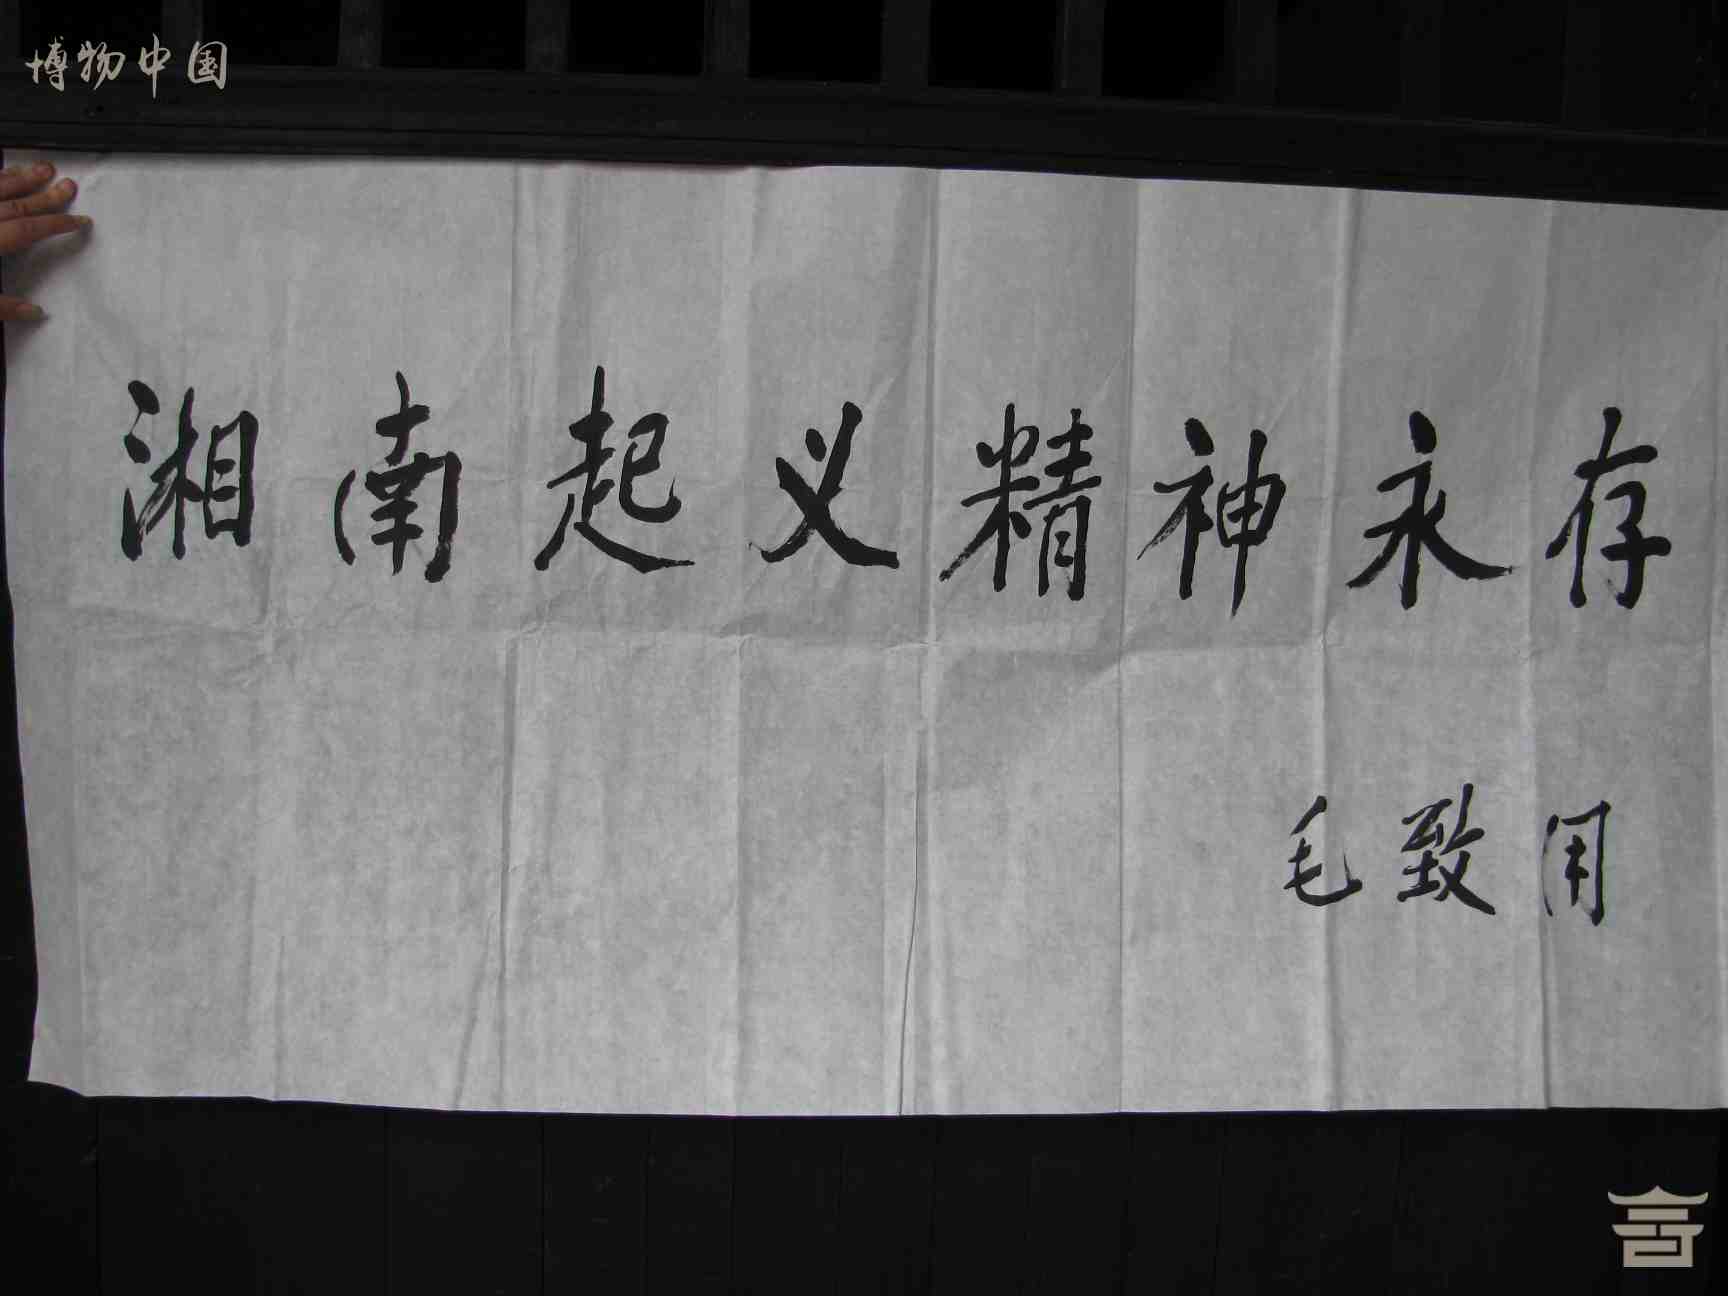 博物中国
湘南起义精神永存
毛致用